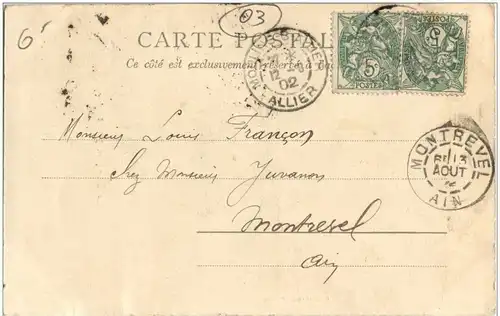 6
03
CARTE POSTALE
Ce côté est exclusivement réservé à
02
ALLIER
5c
POSTES
MONTREVEL
13
AOUT
AIN
Monsieur Louis Françon
chez Monsieur Juvanon
Montrevel
Ain